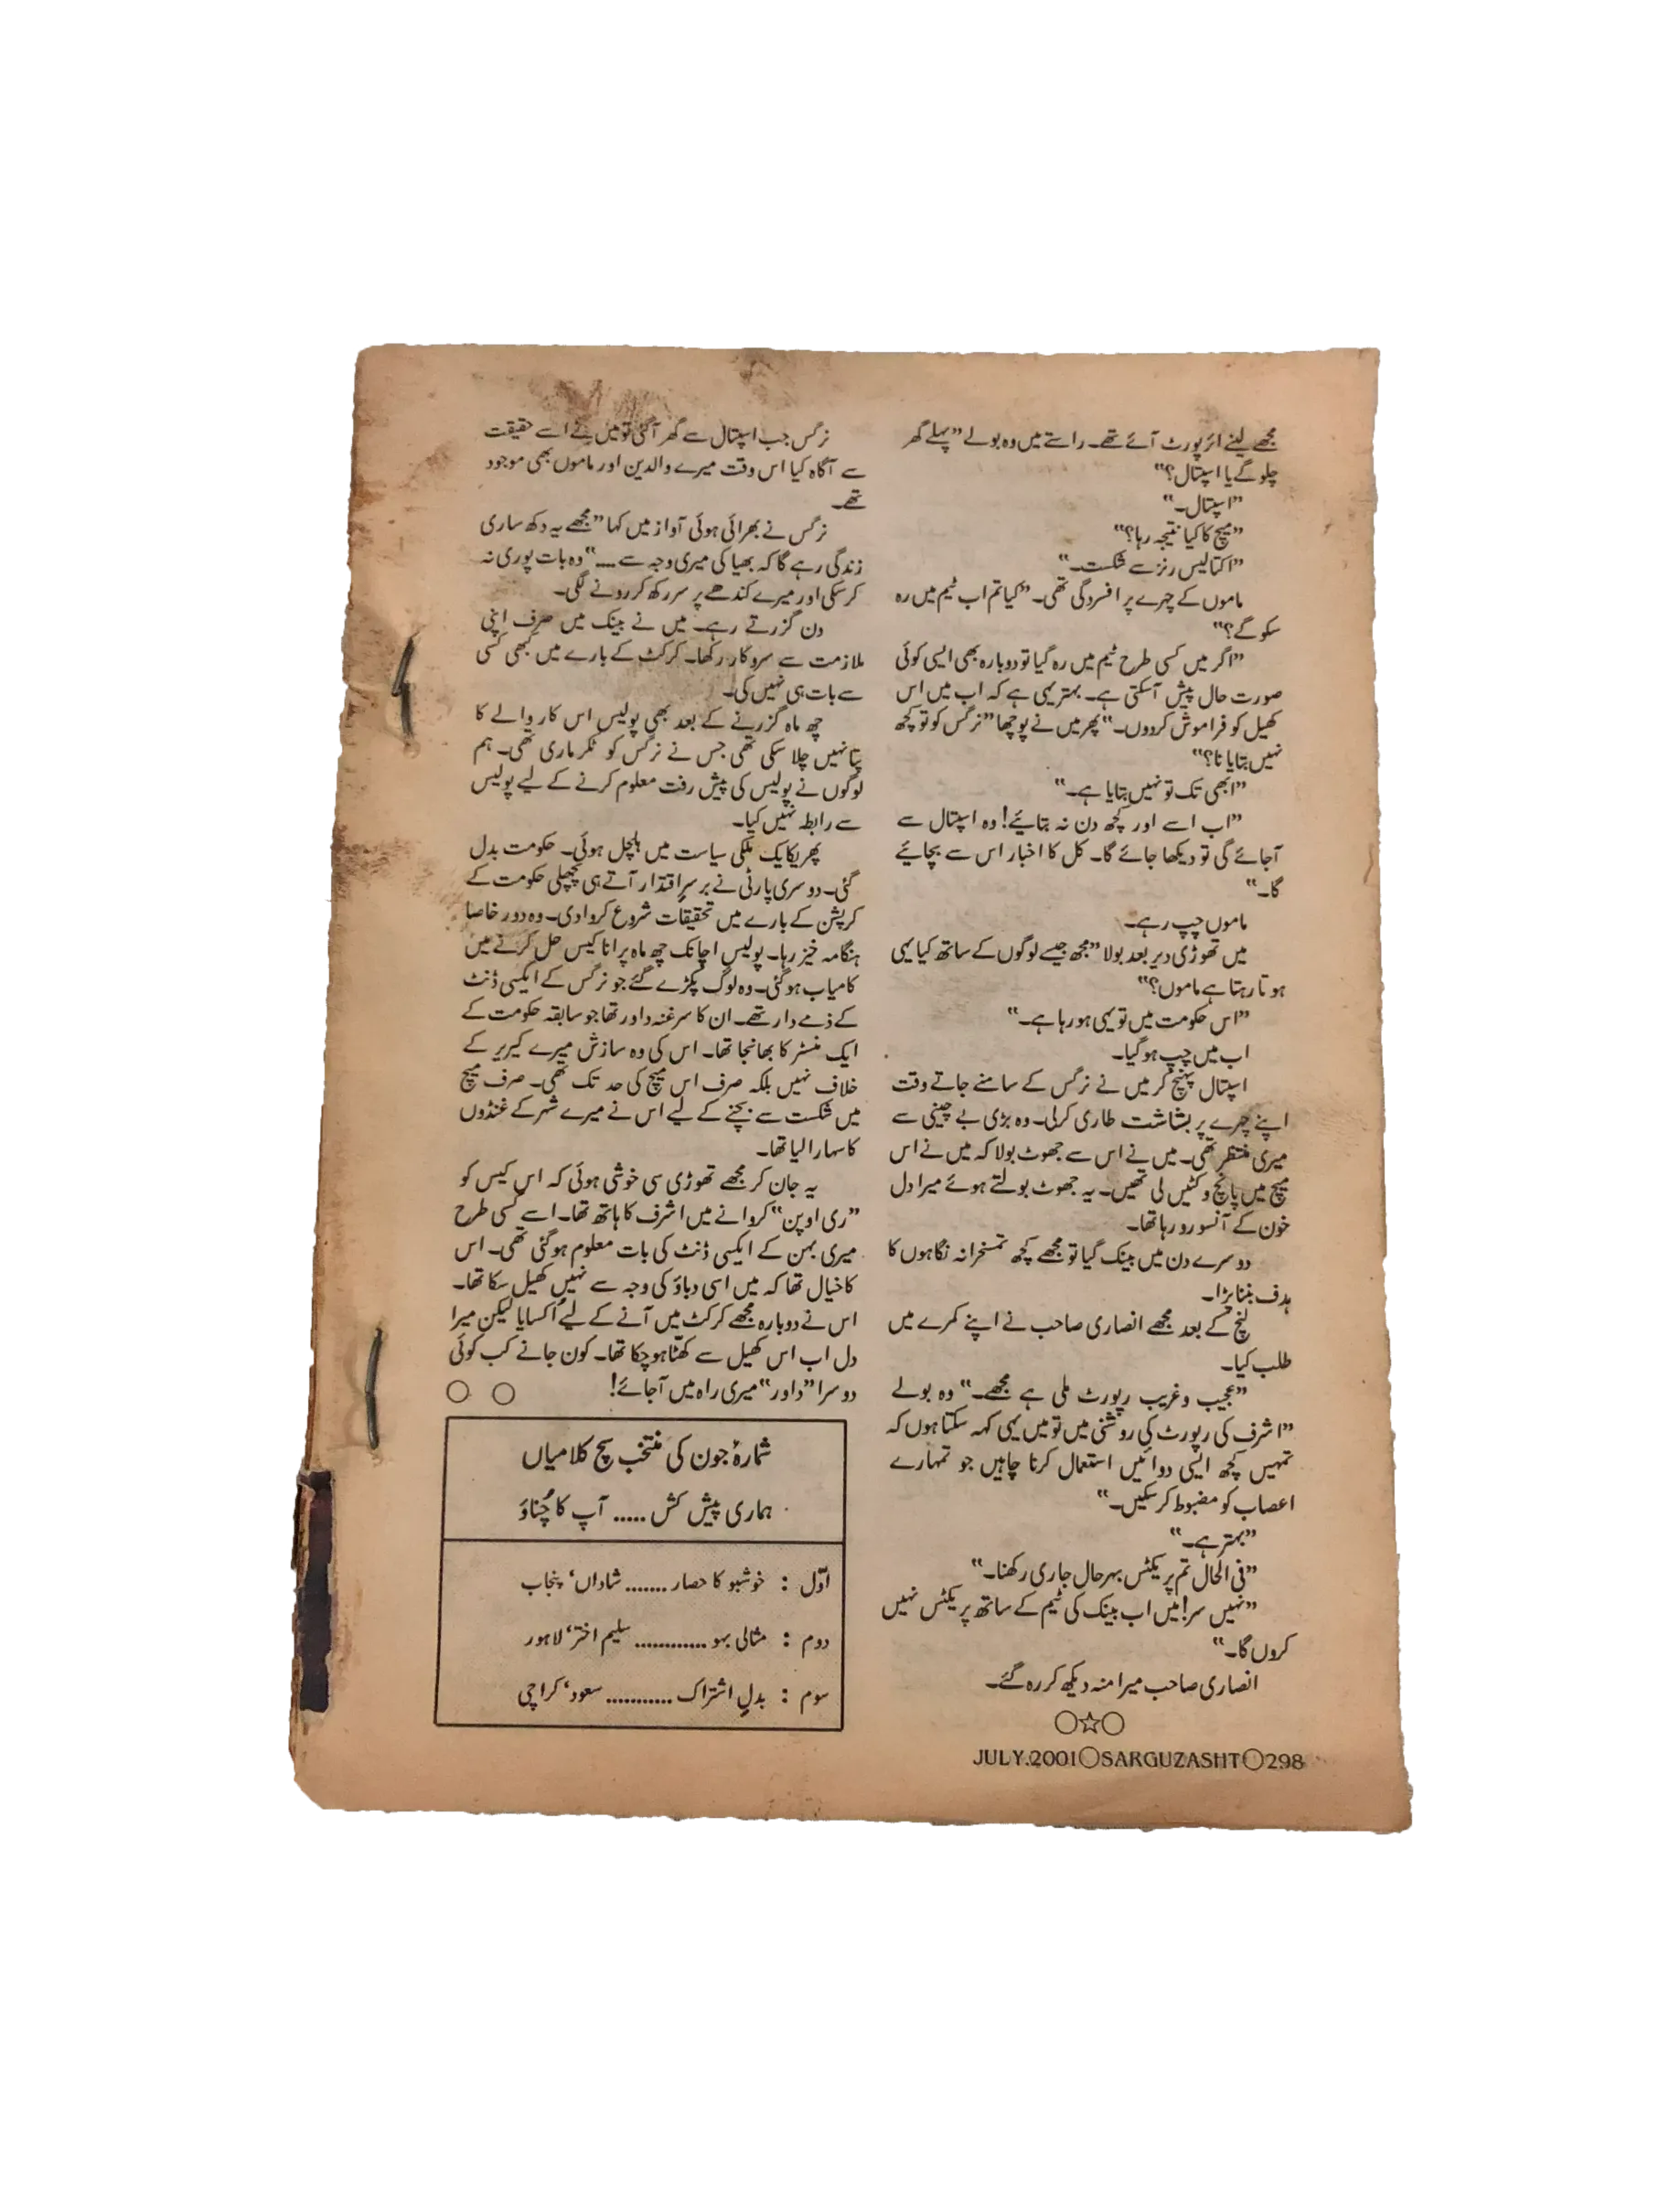 مجھے لینے ائرپورٹ آئے تھے۔ راستے میں وہ بولے ”پہلے گھر
چلو گے یا اسپتال؟“
”اسپتال۔“
”میچ کا کیا نتیجہ رہا؟“
”اکتالیس رنز سے شکست۔“
ماموں کے چہرے پر افسردگی تھی۔ ”کیا تم اب ٹیم میں رہ
سکو گے؟“
”اگر میں کسی طرح ٹیم میں رہ گیا تو دوبارہ بھی ایسی کوئی
صورت حال پیش آسکتی ہے۔ بہتر یہی ہے کہ اب میں اس
کھیل کو فراموش کردوں۔“ پھر میں نے پوچھا ”نرگس کو تو کچھ
نہیں بتایا نا؟“
”ابھی تک تو نہیں بتایا ہے۔“
”اب اسے اور کچھ دن نہ بتائیے! وہ اسپتال سے
آجائے گی تو دیکھا جائے گا۔ کل کا اخبار اس سے بچائیے
گا۔“
ماموں چپ رہے۔
میں تھوڑی دیر بعد بولا ”مجھ جیسے لوگوں کے ساتھ کیا یہی
ہوتا رہتا ہے ماموں؟“
”اس حکومت میں تو یہی ہورہا ہے۔“
اب میں چپ ہوگیا۔
اسپتال پہنچ کر میں نے نرگس کے سامنے جاتے وقت
اپنے چہرے پر بشاشت طاری کرلی۔ وہ بڑی بے چینی سے
میری منتظر تھی۔ میں نے اس سے جھوٹ بولا کہ میں نے اس
میچ میں پانچ وکٹیں لی تھیں۔ یہ جھوٹ بولتے ہوئے میرا دل
خون کے آنسو رو رہا تھا۔
دوسرے دن میں بینک گیا تو مجھے کچھ تمسخرانہ نگاہوں کا
ہدف بننا پڑا۔
لنچ کے بعد مجھے انصاری صاحب نے اپنے کمرے میں
طلب کیا۔
”عجیب و غریب رپورٹ ملی ہے مجھے۔“ وہ بولے
”اشرف کی رپورٹ کی روشنی میں تو میں یہی کہہ سکتا ہوں کہ
تمہیں کچھ ایسی دوائیں استعمال کرنا چاہیں جو تمہارے
اعصاب کو مضبوط کرسکیں۔“
”بہتر ہے۔“
”فی الحال تم پریکٹس بہرحال جاری رکھنا۔“
”نہیں سر! میں اب بینک کی ٹیم کے ساتھ پریکٹس نہیں
کروں گا۔“
انصاری صاحب میرا منہ دیکھ کر رہ گئے۔
○☆○
نرگس جب اسپتال سے گھر آگئی تو میں نے اسے حقیقت
سے آگاہ کیا اس وقت میرے والدین اور ماموں بھی موجود
تھے۔
نرگس نے بھرائی ہوئی آواز میں کہا ”مجھے یہ دکھ ساری
زندگی رہے گا کہ بھیا کی میری وجہ سے ....“ وہ بات پوری نہ
کرسکی اور میرے کندھے پر سر رکھ کر رونے لگی۔
دن گزرتے رہے۔ میں نے بینک میں صرف اپنی
ملازمت سے سروکار رکھا۔ کرکٹ کے بارے میں کبھی کسی
سے بات ہی نہیں کی۔
چھ ماہ گزرنے کے بعد بھی پولیس اس کار والے کا
پتا نہیں چلا سکی تھی جس نے نرگس کو ٹکر ماری تھی۔ ہم
لوگوں نے پولیس کی پیش رفت معلوم کرنے کے لیے پولیس
سے رابطہ نہیں کیا۔
پھر یکایک ملکی سیاست میں ہلچل ہوئی۔ حکومت بدل
گئی۔ دوسری پارٹی نے برسرِاقتدار آتے ہی پچھلی حکومت کے
کرپشن کے بارے میں تحقیقات شروع کروادی۔ وہ دور خاصا
ہنگامہ خیز رہا۔ پولیس اچانک چھ ماہ پرانا کیس حل کرنے میں
کامیاب ہوگئی۔ وہ لوگ پکڑے گئے جو نرگس کے ایکسی ڈنٹ
کے ذمے دار تھے۔ ان کا سرغنہ داور تھا جو سابقہ حکومت کے
ایک منسٹر کا بھانجا تھا۔ اس کی وہ سازش میرے کیریر کے
خلاف نہیں بلکہ صرف اس میچ کی حد تک تھی۔ صرف میچ
میں شکست سے بچنے کے لیے اس نے میرے شہر کے غنڈوں
کا سہارا لیا تھا۔
یہ جان کر مجھے تھوڑی سی خوشی ہوئی کہ اس کیس کو
”ری اوپن“ کروانے میں اشرف کا ہاتھ تھا۔ اسے کسی طرح
میری بہن کے ایکسی ڈنٹ کی بات معلوم ہوگئی تھی۔ اس
کا خیال تھا کہ میں اسی دباؤ کی وجہ سے نہیں کھیل سکا تھا۔
اس نے دوبارہ مجھے کرکٹ میں آنے کے لیے اُکسایا لیکن میرا
دل اب اس کھیل سے کھٹّا ہوچکا تھا۔ کون جانے کب کوئی
دوسرا ”داور“ میری راہ میں آجائے! ○ ○
شمارۂ جون کی منتخب سچ کلامیاں
ہماری پیش کش ..... آپ کا چُناؤ
اوّل : خوشبو کا حصار ....... شاداں، پنجاب
دوم : مثالی بہو ............ سلیم اختر، لاہور
سوم : بدلِ اشتراک ........... سعود، کراچی
JULY.2001○SARGUZASHT○298